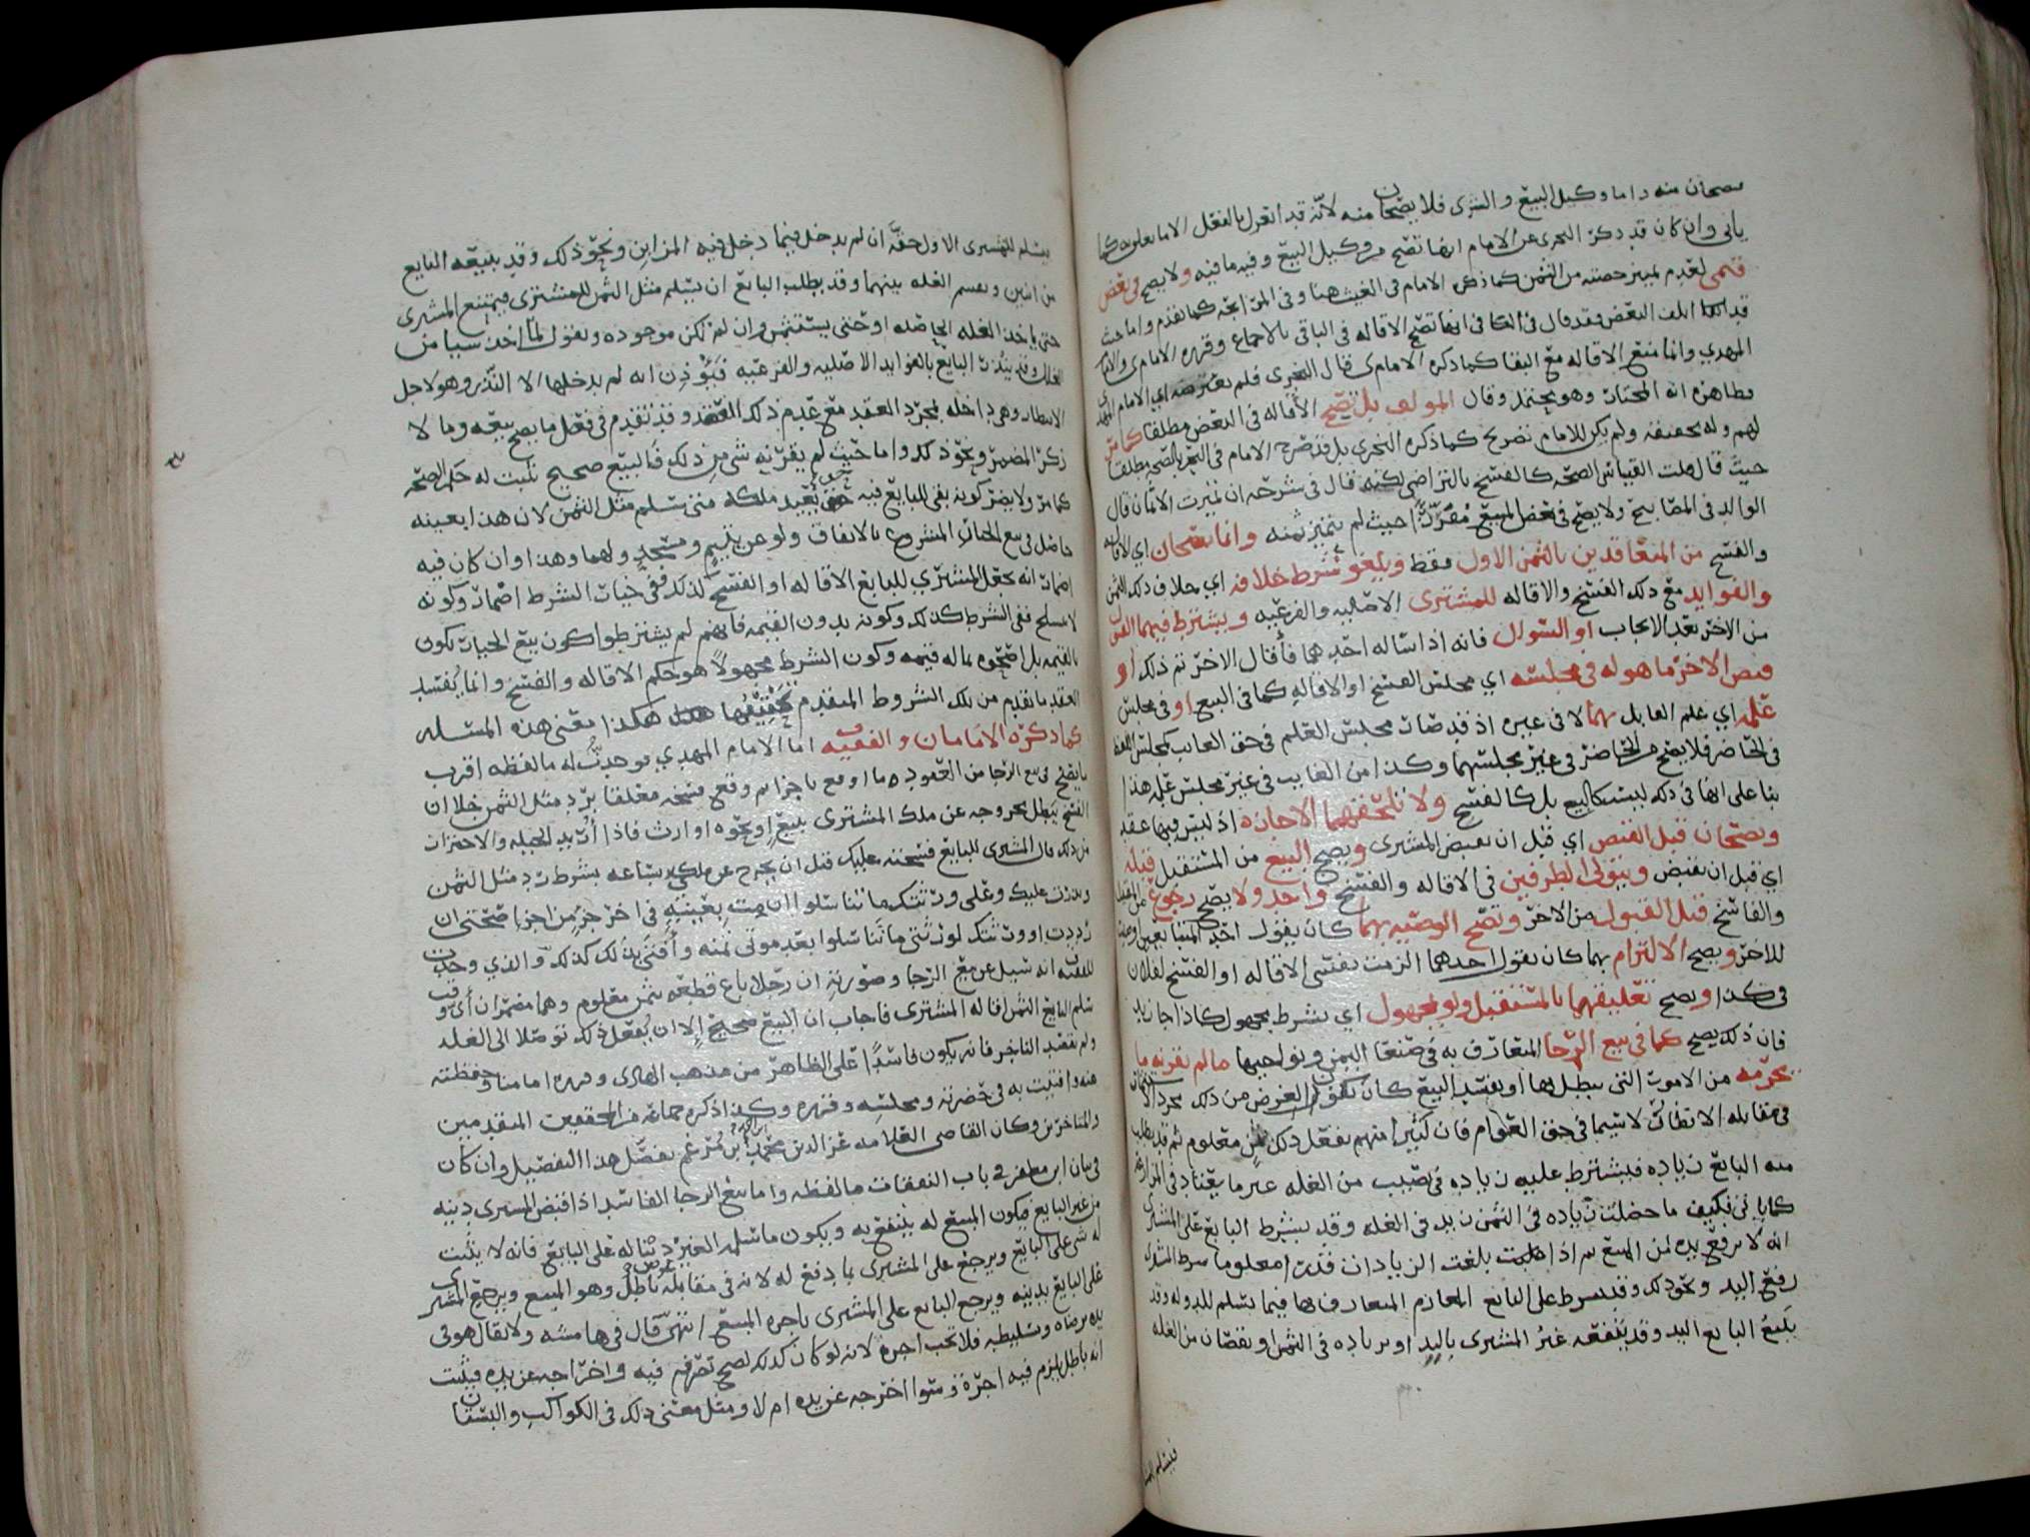 يصحان منه واما وكيل البيع والشرى فلا يصحان منه لانه قد انعزل بالفعل الا ما يعلق به كما
ياتي وان كان قد ذكر النجرى عن الامام انها تصح من وكيل البيع وفيه ما فيه ولا يصح في بعض
قيمي لعدم تميز حصته من الثمن كما ذكره الامام في الغيث هنا وفي المرابحه كما تقدم واما حيث
قد تلف البعض فقد قال في الكافي انها تصح الاقاله في الباقي بالاجماع وقرره الامام
المهدي وانما منع الاقاله مع البقا كما ذكره الامام قال النجرى فلم يعترضه اي الامام المهدي
وظاهره انه المختار وهو يحتمل وقال المولف بل تصح الاقاله في البعض مطلقا كما مر
لهم وله تحقيقه ولم يكن للامام تصريح كما ذكره النجرى بل قد صرح الامام في البحر بالصحه مطلقا
حيث قال قلت القياس الصحه كالفسخ بالتراضي لكنه قال في شرحه ان تميزت الاثمان قال
الوالد في المصابيح ولا يصح في بعض المبيع مفردا حيث لم يتميز ثمنه وانما يصحان اي الاقاله
والفسخ من المتعاقدين بالثمن الاول فقط ويلغو شرط خلافه اي خلاف ذلك الثمن
والفوايد مع ذلك الفسخ والاقاله للمشترى الاصليه والفرعيه ويشترط فيهما القبول
من الاخر بعد الايجاب او السوال فانه اذا ساله احدهما فاقال الاخر تم ذلك او
قبض الاخر ما هو له في مجلسه اي مجلس الفسخ او الاقاله كما في البيع او في مجلس
علمه اي علم القابل بهما لا في غيره اذ قد صار مجلس العلم في حق الغايب كمجلس العقد
في الحاضر فلا يصح من الحاضر في غير مجلسهما وكذا من الغايب في غير مجلس علمه هذا
بنا على انها في ذلك ليست كالبيع بل كالفسخ ولا تلحقهما الاجازه اذ ليس فيها عقد
ويصحان قبل القبض اي قبل ان يقبض المشترى ويصح البيع من المستقيل قبله
اي قبل ان يقبض ويتولى الطرفين في الاقاله والفسخ واحد ولا يصح رجوع عن المقيل
والفاسخ قبل القبول من الاخر وتصح الوصيه بهما كان يقول احد المتبايعين اوصيت
للاخر ويصح الالتزام بهما كان يقول احدهما الزمت نفسي الاقاله او الفسخ لفلان
في كذا ويصح تعليقهما بالمستقبل ولو مجهول اي بشرط مجهول كاذا جا زيد
فان ذلك يصح كما في بيع الرجا المتعارف به في صنعا اليمن ونواحيها ما لم يقرنه ما
يحرمه من الامور التي يبطلها او يفسد البيع كان يكون الغرض من ذلك مجرد
في مقابله الانظار لا سيما في حق العوام فان كثيرا منهم يفعل ذلك بثمن معلوم ثم قد يطلب
منه البايع زياده فيشترط عليه زياده في نصيب من الغله غير ما يعتاد في المزارعه
كما ياتي فكيف ما حصلت زياده في الثمن زيد في الغله وقد يشترط البايع على المشترى
انه لا يرفع يده من المبيع ثم اذا طلبت بلغت الزيادات قدرا معلوما شرط المشترى
رفع اليد ونحو ذلك وقد يشرط على البايع المغارم المتعارف بها فيما يسلم للدوله وقد
يبيع البايع اليد وقد ينفعه غير المشترى باليد او بزياده في الثمن او نقصان من الغله
فيسلم للمشترى
فيسلم للمشترى الاول حقه ان لم يدخل فيما دخل فيه المزابن ونحو ذلك وقد يبيعه البايع
من اثنين ويقسم الغله بينهما وقد يطلب البايع ان يسلم مثل الثمن للمشترى فيمتنع المشرى
حتى ياخذ الغله الحاصله او حتى يستثمر وان لم تكن موجوده ويقول لما اخذ شيا من
الغلات وقد ينذر البايع بالفوايد الاصليه والفرعيه فيوذن انه لم يدخلها الا النذر وهو لاجل
الانتظار وهي داخله بمجرد العقد مع عدم ذلك القصد وقد تقدم في فصل ما يصح بيعه وما لا
ذكر المضمر ونحو ذلك واما حيث لم يقرن به شي من ذلك فالبيع صحيح ثبت له حكم الصحه
كما مر ولا يضر كونه بقي للبايع فيه حق يعيد ملكه متى سلم مثل الثمن لان هذا بعينه
حاصل في بيع الخيار المشروط بالاتفاق ولو عن يتيم ومسجد ولهما وهذا وان كان فيه
اضمار انه يجعل المشتري للبايع الاقاله او الفسخ كذلك ففي خيار الشرط اضمار وكونه
لا يصلح ففي الشرط كذلك وكونه بدون القيمه فانهم لم يشترطوا كون بيع الخيار يكون
بالقيمه بل اصحوه بماله قيمه وكون الشرط مجهولا هو حكم الاقاله والفسخ وانما يفسد
العقد ما تقدم من تلك الشروط المتقدم تحقيقها هكذا معنى هذه المسله
كما ذكره الامامان والفقيه اما الامام المهدي فوجدت له ما لفظه اقرب
ما يصح في بيع الرجا من العقود ما اوقع ناجزا ثم وقع فسخه معلقا برد مثل الثمن خلا ان
الفسخ يبطل بخروجه عن ملك المشترى ببيع او نحوه او ارث فاذا اريد الحيله والاحتراز
من ذلك قال المشترى للبايع فسخته عليك قبل ان يخرج عن ملكي بساعه بشرط رد مثل الثمن
ونذرت عليك وعلى ورثتك ما تناسلوا ان مت بعينيه في اخر جزء من اجزا صحتي ان
رددت او ورثتك لورثتي ما تناسلوا بعد موتي ثمنه وافتى بذلك كذلك والذي وجدت
للفقيه انه سيل عن بيع الرجا وصورته ان رجلا باع قطعه بثمن معلوم وهما مضمران اي وقت
سلم البايع الثمن اقاله المشترى فاجاب ان البيع صحيح الا ان يفعل ذلك توصلا الى الغله
ولم يقصد الناجز فانه يكون فاسدا على الظاهر من مذهب الهادى وقرره امامنا وحفظته
عنه وافتيت به في حضرته ومجلسه وقرره وكذا ذكره جماعه من المحققين المتقدمين
والمتاخرين وكان القاضي العلامه عز الدين محمد بن مرغم يفصل هذا التفصيل وان كان
في بيان ابن مظفر في باب النفقات ما لفظه واما بيع الرجا الفاسد اذا قبض المشترى دينه
من غير البايع فيكون المبيع له ينتفع به ويكون ما سلمه الغير دينا له على البايع فانه لا يثبت
له شي على البايع ويرجع على المشترى بما دفع له لانه في مقابله باطل وهو المبيع ويرجع المشترى
على البايع بدينه ويرجع البايع على المشترى باجره المبيع انتهى قال في هامشه ولا يقال هو في
يده برضاه وتسليطه فلا تجب اجره لانه لو كان كذلك لصح تصرفهم فيه واخراجه عن يده فيثبت
انه باطل يلزم فيه اجره وسوا اخرجه عن يده ام لا ومثل معنى ذلك في الكواكب والبستان